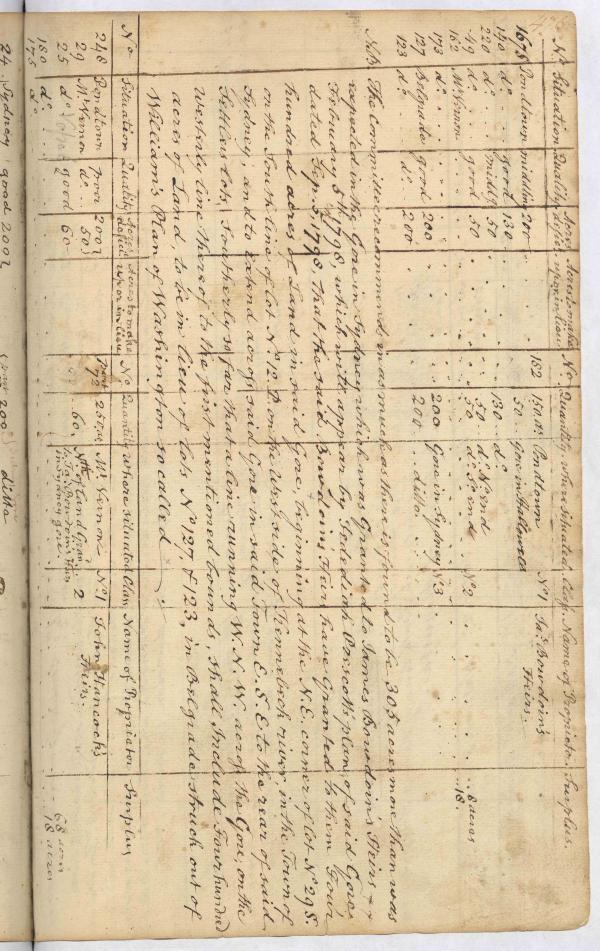 No. Situation Quality Acres deficit Acres to make up or in lieu No. Quantity where situated Class Name of Proprietor Surplus.
167 & 8 Pondtown middling 200 182 150 ds. Pondtown No. 1 Jas. Bowdoin's
50 Gore in Hallowell Heirs.
140 do. good 130 130 do.
220 do. middlg 50 50 do. No. end
49 do. good 50 50 do. So. end No. 2 8 acres
162 Mt. Vernon 18.
173 do.
127 Belgrade good 200 200 Gore in Sydney No. 3
123 do. do. 200 200 ditto
Note, The Committee recommends in as much as there is found to be 305 acres more than was
expected in the Gore in Sydney which was Granted to James Bowdoin's Heirs
February 8th 1798, which will appear by Jedediah Prescott's plan of said Gore
dated Sep. 5, 1798, That the said Bowdoin's Heirs have Granted to them Four
hundred acres of Land in said Gore, beginning at the N.E. corner of lot No. 298.
on the South line of lot No. 12 on the West side of Kennebeck river, in the Town of
Sydney, and to extend across said Gore in said Town E. S. E to the rear of said
Settlars lots, Southerly so far that a line running W. N. W. across the Gore, on the
westerly line thereof to the first mentioned bounds, shall Include Four hundred
acres of Land, to be in lieu of lots No. 127 & 123, in Belgrade struck out of
William's Plan of Washington so called
No. Situation Quality Acres deficit Acres to make up or in lieu No. Quantity where situated Class Name of Proprietor Surplus
248 Pondtown poor 200 part 72 250 Mt. Vernon No. 1 John Hancock's
29 Mt. Vernon do. 50 Heirs.
25 do. good 60 60 No. of Land Gran. 2
to Jas. Bowdoin's Heirs
in Sydney gore.
180 do. 68 acres
175 do. 18 acres
24 Sydney good 200 part 200 ditto